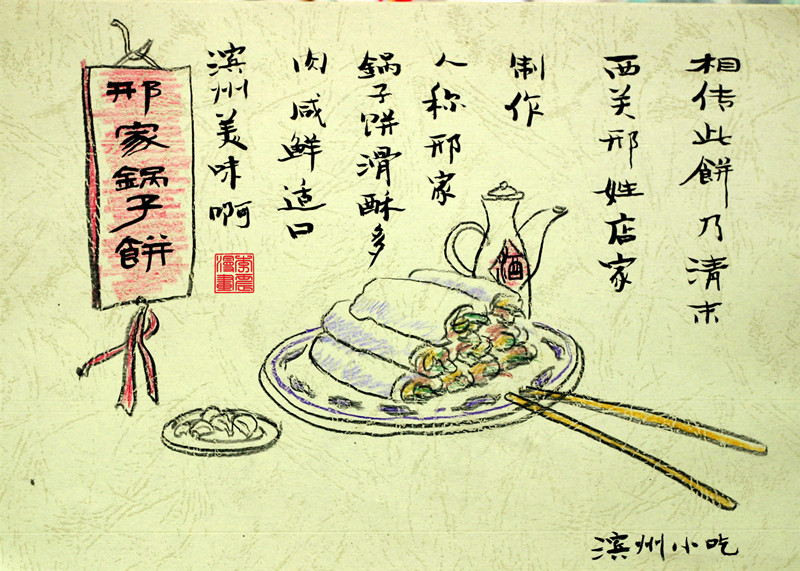 相传此餅乃清末
西关邢姓店家
制作
人称邢家
锅子饼滑酥多
肉咸鲜适口
滨州美味啊
邢家锅子餅
酒
滨州小吃